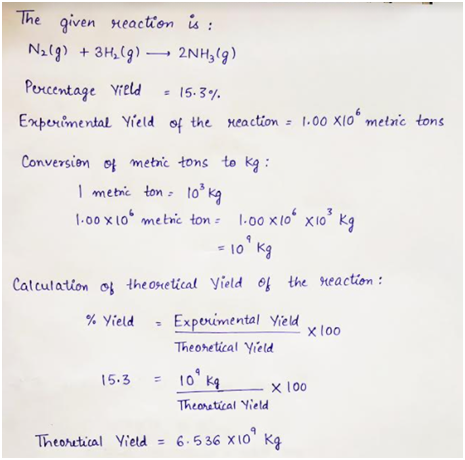 The given reaction is :
N₂(g) + 3H₂(g) ⟶ 2NH₃(g)
Percentage Yield = 15.3%.
Experimental Yield of the reaction = 1.00 X10⁶ metric tons
Conversion of metric tons to kg :
1 metric ton = 10³ kg
1.00 x 10⁶ metric ton = 1.00 x10⁶ x10³ kg
= 10⁹ kg
Calculation of theoretical Yield of the reaction :
% Yield = Experimental Yield / Theoretical Yield X 100
15.3 = 10⁹ kg / Theoretical Yield X 100
Theoretical Yield = 6.536 X10⁹ kg